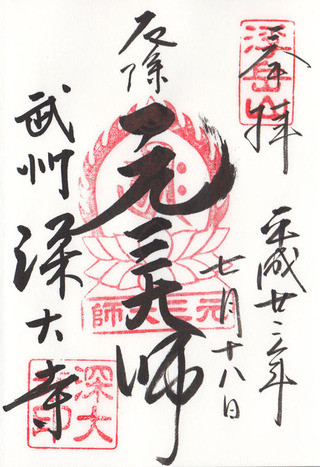 奉拝
浮岳山
平成廿二年
七月十八日
厄除
元三大師
元三大師
武州
深大寺
深大寺印